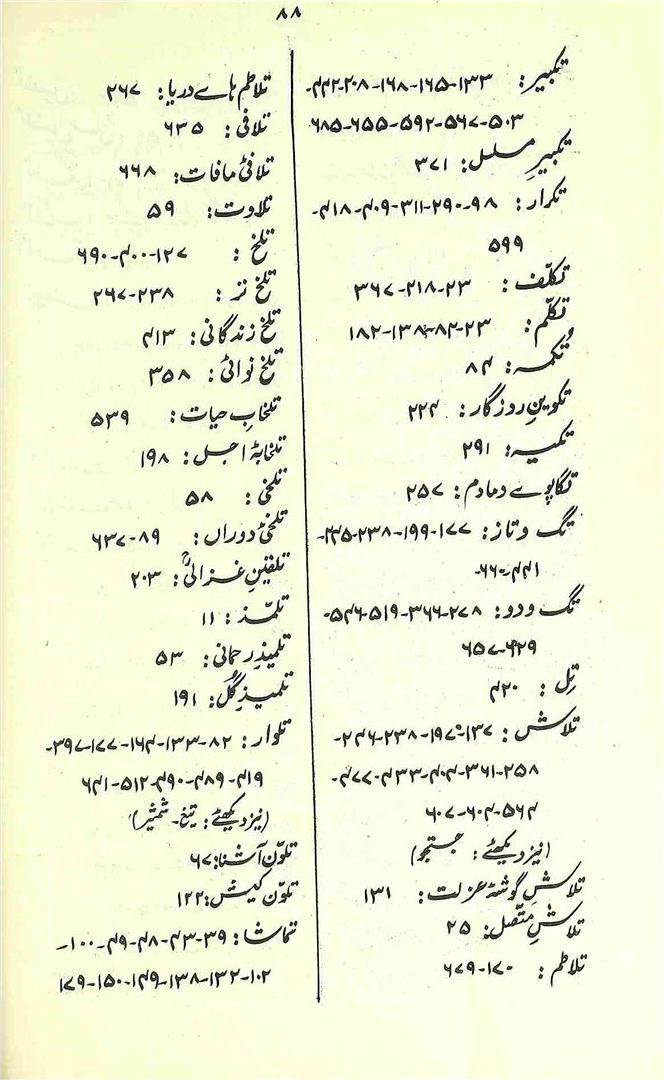 ۸۸
تکبیر: ۱۳۳-۱۶۵-۱۶۸-۲۰۸-۴۴۲-
۵۰۳-۵۶۷-۵۹۲-۶۵۵-۶۸۵
تکبیرِ مسلسل: ۳۷۱
تکرار: ۹۸-۲۹۰-۳۱۱-۴۰۹-۴۱۸-
۵۹۹
تکلّف: ۲۳-۲۱۸-۳۶۷
تکلّم: ۲۳-۸۲-۱۳۸-۱۸۲
تکمہ: ۸۴
تکوینِ روزگار: ۲۲۴
تکیہ: ۲۹۱
تگاپوے دمادم: ۲۵۷
تگ وتاز: ۱۷۷-۱۹۹-۲۳۸-۲۴۵-
۴۴۱-۶۶۰-
تگ ودو: ۲۷۸-۳۶۶-۵۱۹-۵۴۶-
۶۲۹-۶۵۷
تِل: ۴۲۰
تلاش: ۱۳۷-۱۹۷-۲۳۸-۲۴۶-
۲۵۸-۳۶۱-۴۰۴-۴۳۳-۴۷۷-
۵۶۴-۶۰۴-۶۰۷
(نیز دیکھئے: جستجو)
تلاشِ گوشۂ عزلت: ۱۳۱
تلاشِ متّصل: ۲۵
تلاطم: ۱۷۰-۶۷۹
تلاطم ہاے دریا: ۲۶۷
تلافی: ۶۳۵
تلافیٔ مافات: ۶۶۸
تلاوت: ۵۹
تلخ: ۱۲۷-۴۰۰-۶۹۰
تلخ تر: ۲۳۸-۲۶۷
تلخ زندگانی: ۴۱۳
تلخ نوائی: ۳۵۸
تلخابِ حیات: ۵۳۹
تلخابۂ اجل: ۱۹۸
تلخی: ۵۸
تلخیٔ دوراں: ۸۹-۶۳۷
تلقینِ غزالیؒ: ۲۰۳
تلمّذ: ۱۱
تلمیذِ رحمانی: ۵۳
تلمیذِ گُل: ۱۹۱
تلوار: ۸۲-۱۳۳-۱۶۴-۱۷۷-۳۹۷-
۴۱۹-۴۸۹-۴۹۰-۵۱۲-۶۴۱
(نیز دیکھئے: تیغ۔ شمشیر)
تلوّن آشنا: ۶۷
تلوّن کیش: ۱۲۲
تماشا: ۳۹-۴۳-۴۸-۴۹-۱۰۰-
۱۰۲-۱۳۲-۱۳۸-۱۴۹-۱۵۰-۱۷۹